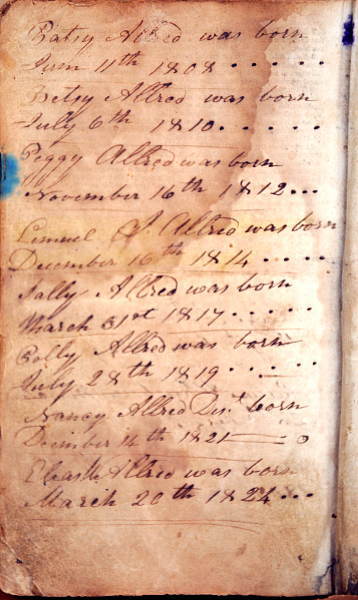 Patsy Allred was born
June 11th 1808 . . . . .
Betsy Allred was born
July 6th 1810 . . . . . .
Peggy Allred was born
November 16th 1812 . . .
Lemuel J. Allred was born
December 16th 1814 . . . .
Sally Allred was born
March 31st 1817 . . . . .
Polly Allred was born
July 28th 1819 . . . . .
Nancy Allred born
December 14th 1821
Allred was born
March 20th 1824 . . .